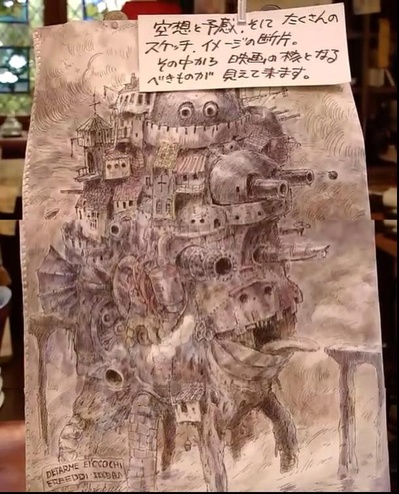 空想と予感、そして たくさんの
スケッチ、イメージの断片。
その中から 映画の核となる
べきものが 見えて来ます。